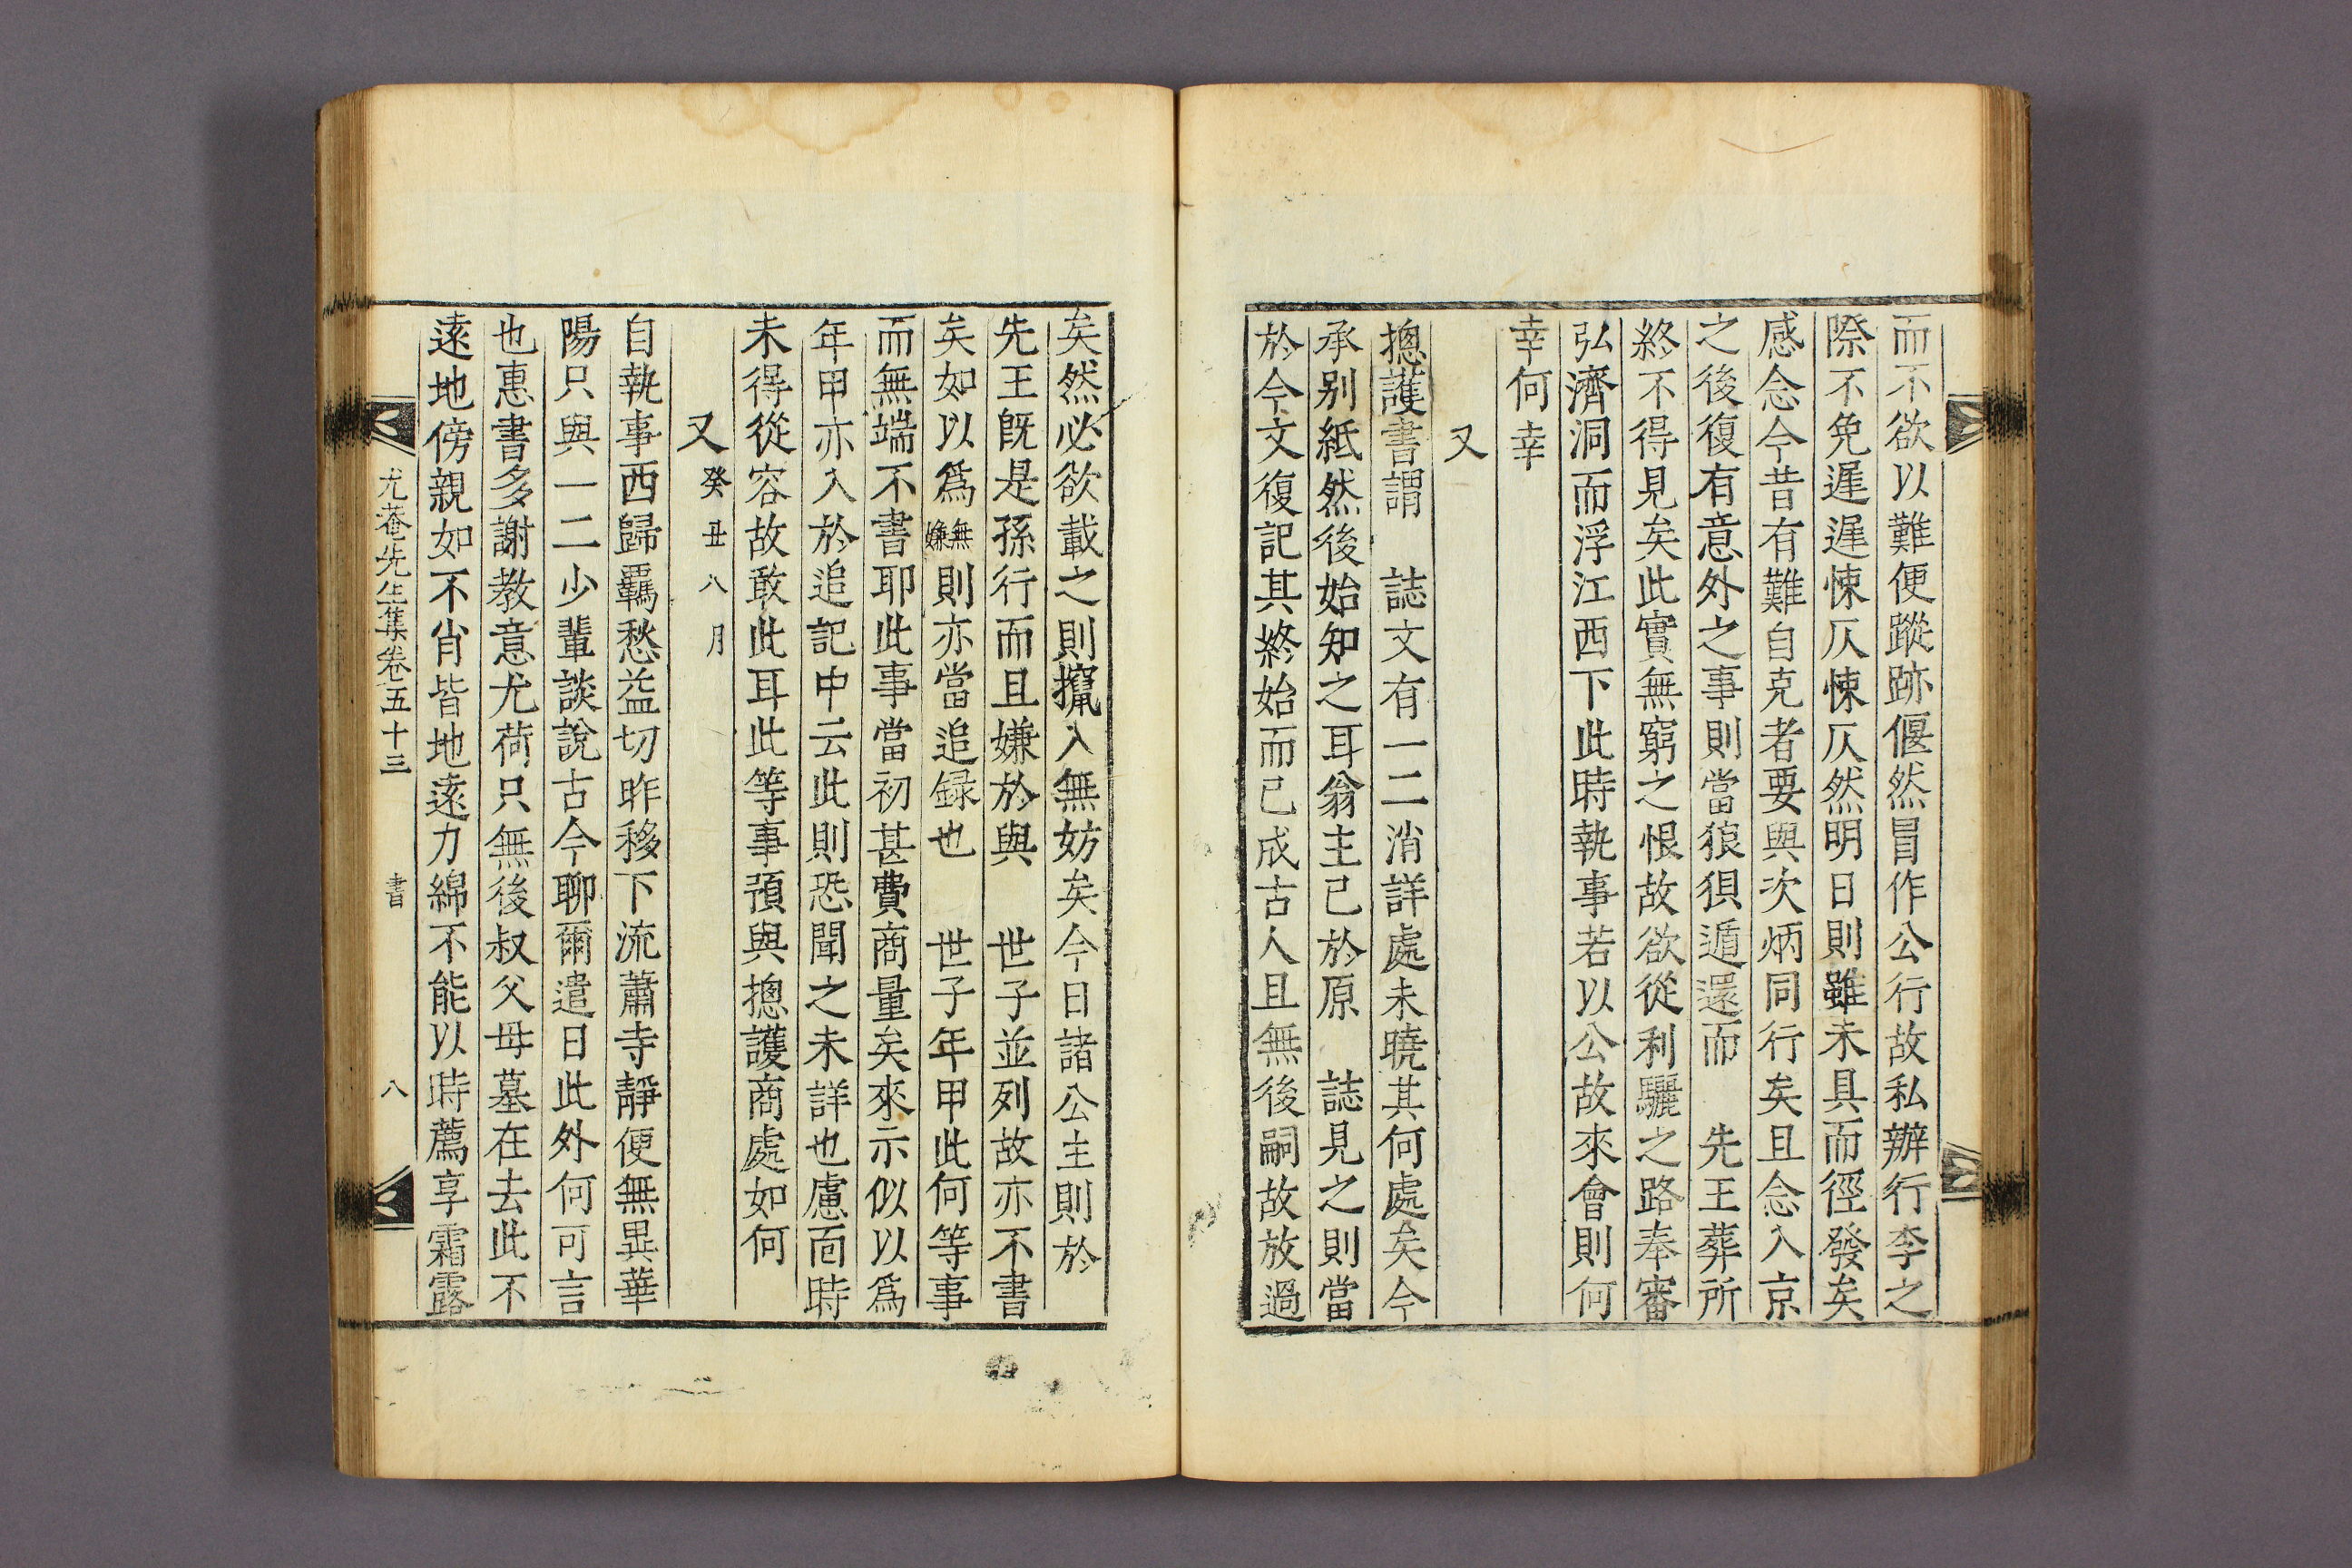 而不欲以難便蹤跡偃然冒作公行故私辦行李之
際不免遲遲悚仄悚仄然明日則雖未具而徑發矣
感念今昔有難自克者要與次炳同行矣且念入京
之後復有意外之事則當狼狽遁還而 先王葬所
終不得見矣此實無窮之恨故欲從利驪之路奉審
弘濟洞而浮江西下此時執事若以公故來會則何
幸何幸
又
摠護書謂 誌文有一二消詳處未曉其何處矣今
承別紙然後始知之耳翁主已於原 誌見之則當
於今文復記其終始而已成古人且無後嗣故放過
矣然必欲載之則攛入無妨矣今日諸公主則於
先王旣是孫行而且嫌於與 世子並列故亦不書
矣如以爲無嫌則亦當追録也 世子年甲此何等事
而無端不書耶此事當初甚費商量矣來示似以爲
年甲亦入於追記中云此則恐聞之未詳也慮面時
未得從容故敢此耳此等事預與摠護商處如何
又 癸丑八月
自執事西歸羈愁益切昨移下流蕭寺靜便無異華
陽只與一二少輩談說古今聊爾遣日此外何可言
也惠書多謝教意尤荷只無後叔父母墓在去此不
遠地傍親如不肖皆地遠力綿不能以時薦享霜露
尤菴先生集卷五十三 書 八